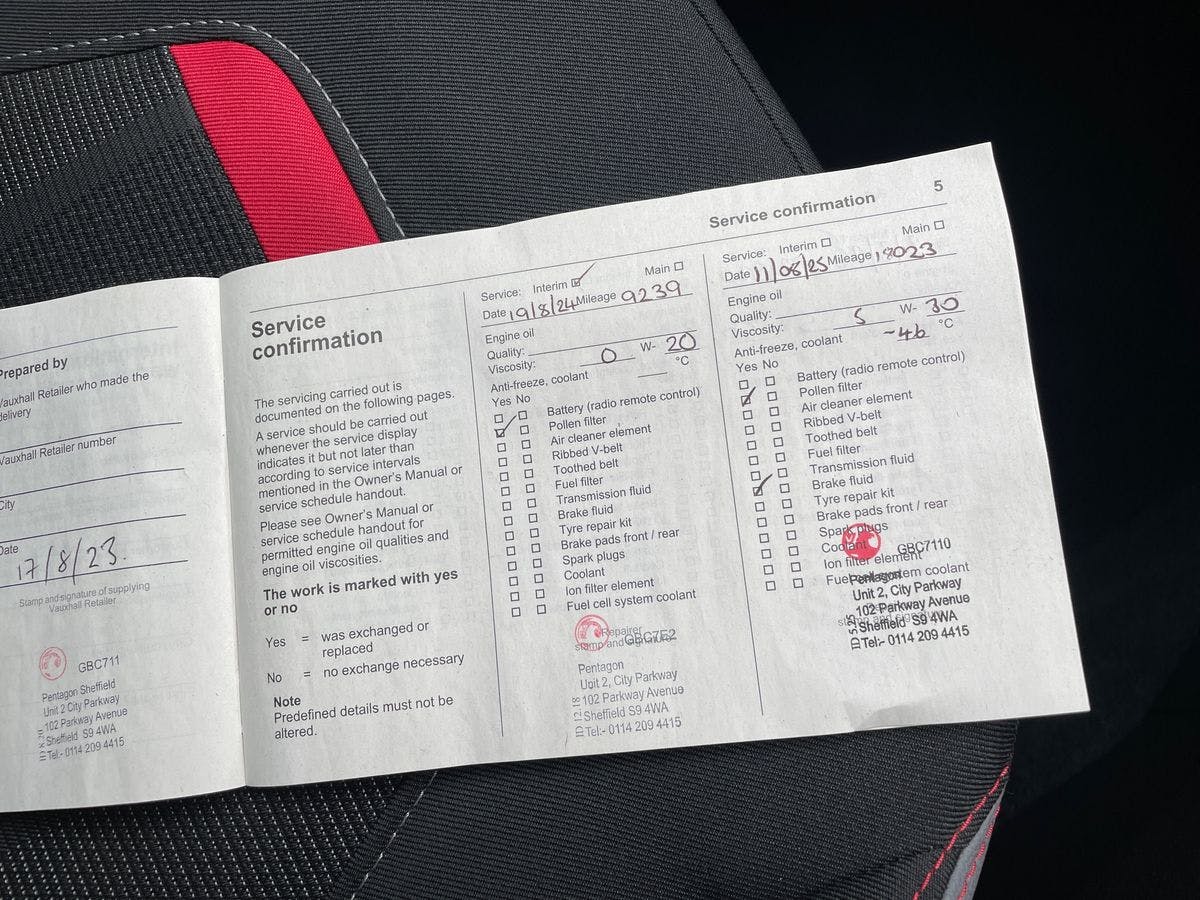 Prepared by
Vauxhall Retailer who made the
delivery
Vauxhall Retailer number
City
Date
17/8/23.
Stamp and signature of supplying
Vauxhall Retailer
GBC711
Pentagon Sheffield
Unit 2 City Parkway
102 Parkway Avenue
Sheffield S9 4WA
Tel:- 0114 209 4415
Service
confirmation
The servicing carried out is
documented on the following pages.
A service should be carried out
whenever the service display
indicates it but not later than
according to service intervals
mentioned in the Owner's Manual or
service schedule handout.
Please see Owner's Manual or
service schedule handout for
permitted engine oil qualities and
engine oil viscosities.
The work is marked with yes
or no
Yes = was exchanged or
replaced
No = no exchange necessary
Note
Predefined details must not be
altered.
Service: Interim Main
Date 19/8/24 Mileage 9239
Engine oil
Quality:
Viscosity: 0 W- 20
Anti-freeze, coolant °C
Yes No
Battery (radio remote control)
Pollen filter
Air cleaner element
Ribbed V-belt
Toothed belt
Fuel filter
Transmission fluid
Brake fluid
Tyre repair kit
Brake pads front / rear
Spark plugs
Coolant
Ion filter element
Fuel cell system coolant
Repairer
stamp and signature
GBC7E2
Pentagon
Unit 2, City Parkway
102 Parkway Avenue
Sheffield S9 4WA
Tel:- 0114 209 4415
Service confirmation 5
Service: Interim Main
Date 11/08/25 Mileage 18023
Engine oil
Quality:
Viscosity: 5 W- 30
Anti-freeze, coolant -46 °C
Yes No
Battery (radio remote control)
Pollen filter
Air cleaner element
Ribbed V-belt
Toothed belt
Fuel filter
Transmission fluid
Brake fluid
Tyre repair kit
Brake pads front / rear
Spark plugs
Coolant
GBC7110
Ion filter element
Fuel cell system coolant
Pentagon
Unit 2, City Parkway
102 Parkway Avenue
stamp and signature
Sheffield S9 4WA
Tel:- 0114 209 4415